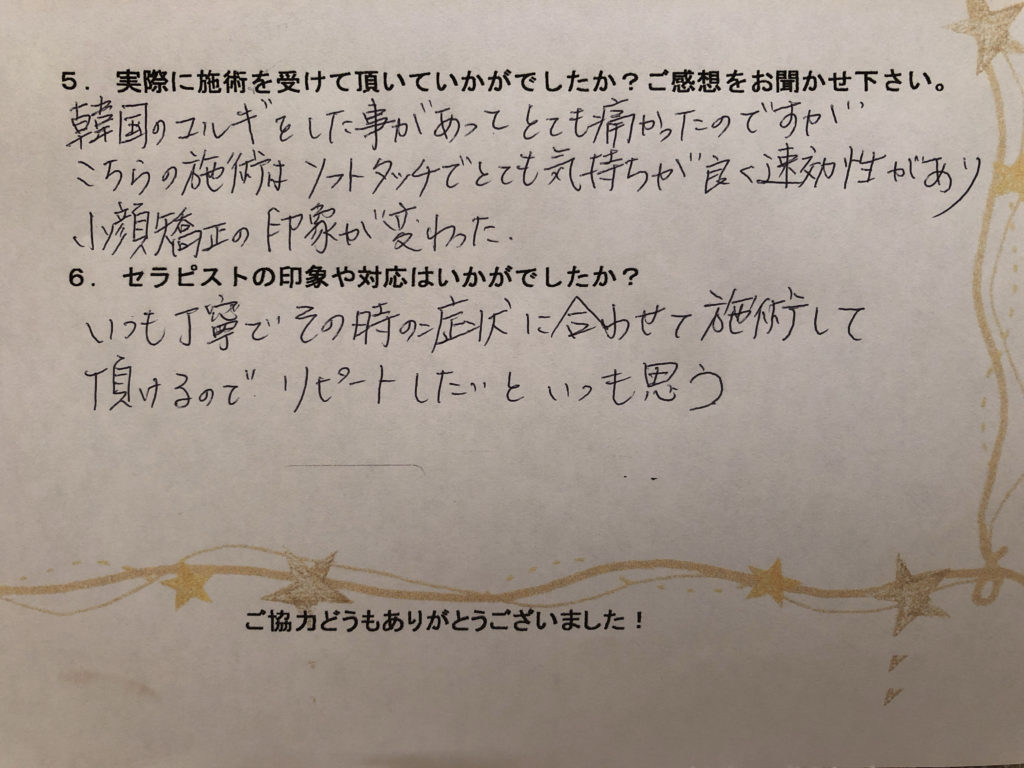 ５． 実際に施術を受けて頂いていかがでしたか？ご感想をお聞かせ下さい。
韓国のコルギをした事があってとても痛かったのですが
こちらの施術はソフトタッチでとても気持ちが良く速効性があり
小顔矯正の印象が変わった.
６． セラピストの印象や対応はいかがでしたか？
いつも丁寧でその時の症状に合わせて施術して
頂けるのでリピートしたいといつも思う
ご協力どうもありがとうございました！